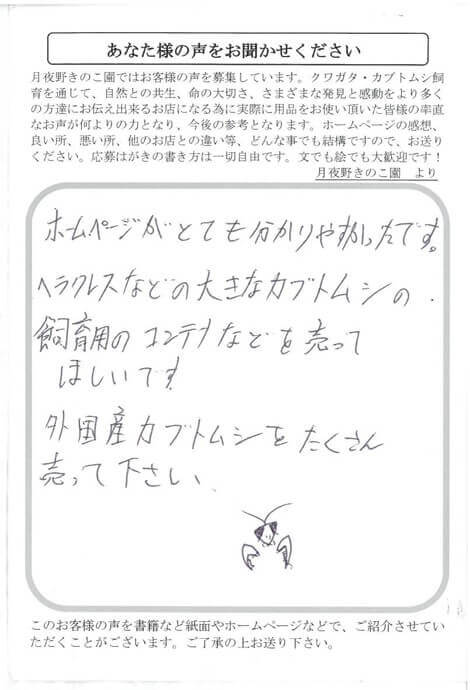 あなた様の声をお聞かせください
月夜野きのこ園ではお客様の声を募集しています。クワガタ・カブトムシ飼
育を通じて、自然との共生、命の大切さ、さまざまな発見と感動をより多く
の方達にお伝え出来るお店になる為に実際に用品をお使い頂いた皆様の率直
なお声が何よりの力となり、今後の参考となります。ホームページの感想、
良い所、悪い所、他のお店との違い等、どんな事でも結構ですので、お送り
ください。応募はがきの書き方は一切自由です。文でも絵でも大歓迎です！
月夜野きのこ園　より
ホームページがとても分かりやすかったです。
ヘラクレスなどの大きなカブトムシの
飼育用のコンテナなどを売って
ほしいです
外国産カブトムシをたくさん
売って下さい、
このお客様の声を書籍など紙面やホームページなどで、ご紹介させてい
ただくことがございます。ご了承の上お送り下さい。